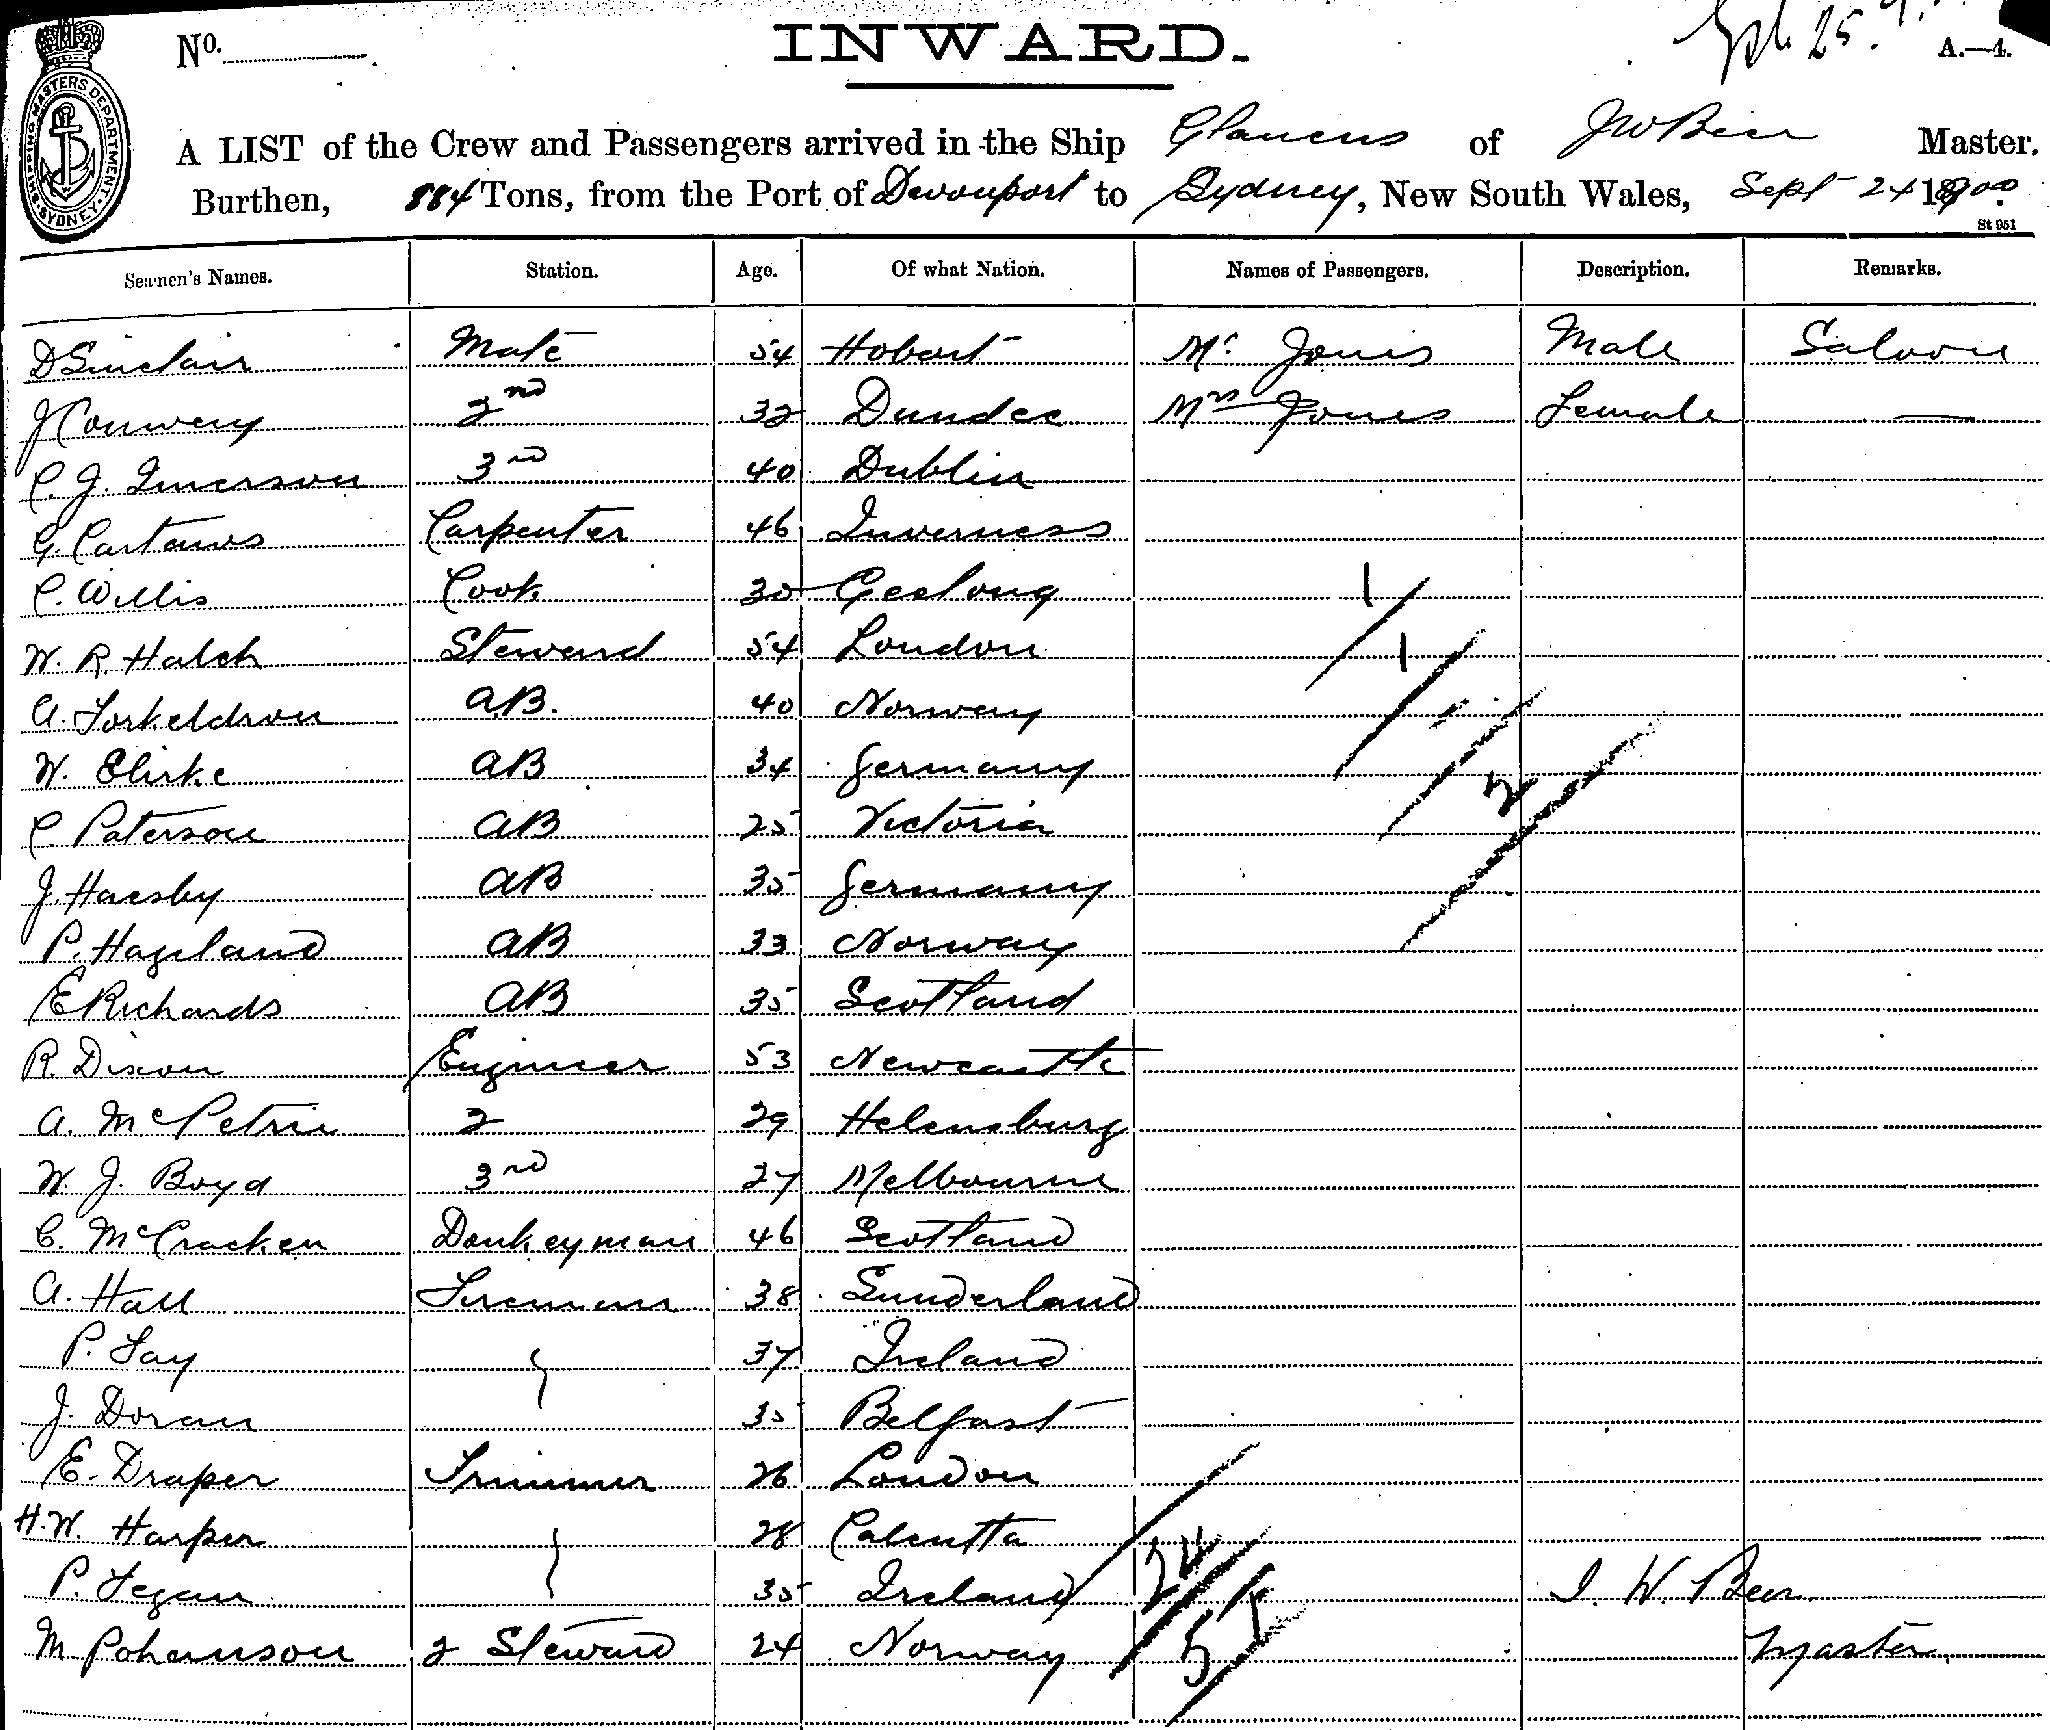 No.
INWARD.
Sept. 25.
A.—4.
SHIPPING MASTERS DEPARTMENT. SYDNEY.
A LIST of the Crew and Passengers arrived in the Ship Glaucus of J W Beer Master.
Burthen, 884 Tons, from the Port of Devonport to Sydney, New South Wales, Sept 24 1900.
St 951
Seamen's Names. Station. Age. Of what Nation. Names of Passengers. Description. Remarks.
D Sinclair Mate 54 Hobart Mr. Jones Male Saloon
J Conwery 2nd 32 Dundee Mrs Jones Female —
C. J. Imerson 3rd 40 Dublin
G. Cartaws Carpenter 46 Inverness
C. Willis Cook 30 Geelong 1
W. R. Halch Steward 54 London 1
A. Torkeldson A.B. 40 Norway
W. Elirke AB 34 Germany 2
C Paterson AB 25 Victoria
J. Haesby AB 35 Germany
P. Hageland AB 33 Norway
E Richards AB 35 Scotland
R. Dixon Engineer 53 Newcastle
A. McPetrie 2 29 Helensburg
W. J. Boyd 3rd 27 Melbourne
C. McCracken Donkeyman 46 Scotland
A. Hall Fireman 38 Sunderland
P. Fay 37 Ireland
J. Doran 35 Belfast
E. Draper Trimmer 26 London
H.W. Harper 28 Calcutta
P. Fegan 35 Ireland 24 J. W. Beer
M Johanson 2 Steward 24 Norway 51 Master.